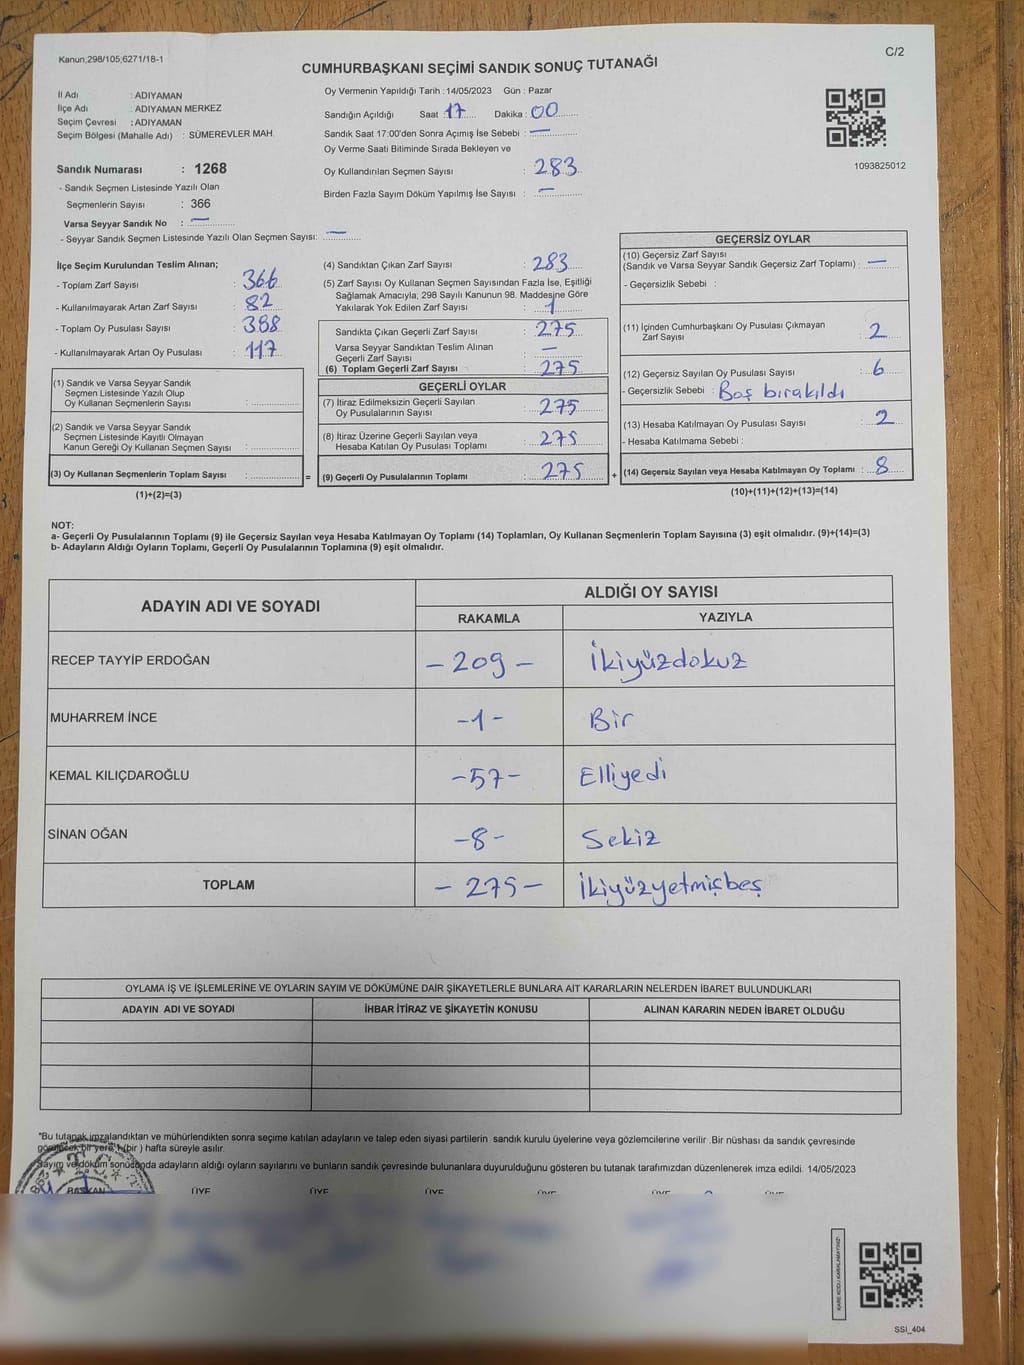 Kanun;298/105;6271/18-1
C/2
CUMHURBAŞKANI SEÇİMİ SANDIK SONUÇ TUTANAĞI
İl Adı : ADIYAMAN
İlçe Adı : ADIYAMAN MERKEZ
Seçim Çevresi : ADIYAMAN
Seçim Bölgesi (Mahalle Adı) : SÜMEREVLER MAH.
Oy Vermenin Yapıldığı Tarih :14/05/2023 Gün : Pazar
Sandığın Açıldığı Saat : 17 Dakika : 00
Sandık Saat 17:00'den Sonra Açımış İse Sebebi : —
Oy Verme Saati Bitiminde Sırada Bekleyen ve
Oy Kullandırılan Seçmen Sayısı : 283
Birden Fazla Sayım Döküm Yapılmış İse Sayısı : —
1093825012
Sandık Numarası : 1268
- Sandık Seçmen Listesinde Yazılı Olan
Seçmenlerin Sayısı : 366
Varsa Seyyar Sandık No : —
- Seyyar Sandık Seçmen Listesinde Yazılı Olan Seçmen Sayısı: —
İlçe Seçim Kurulundan Teslim Alınan;
- Toplam Zarf Sayısı : 366
- Kullanılmayarak Artan Zarf Sayısı : 82
- Toplam Oy Pusulası Sayısı :
- Kullanılmayarak Artan Oy Pusulası : 117
(1) Sandık ve Varsa Seyyar Sandık
Seçmen Listesinde Yazılı Olup
Oy Kullanan Seçmenlerin Sayısı :
(2) Sandık ve Varsa Seyyar Sandık
Seçmen Listesinde Kayıtlı Olmayan
Kanun Gereği Oy Kullanan Seçmen Sayısı :
(3) Oy Kullanan Seçmenlerin Toplam Sayısı : =
(1)+(2)=(3)
(4) Sandıktan Çıkan Zarf Sayısı : 283
(5) Zarf Sayısı Oy Kullanan Seçmen Sayısından Fazla İse, Eşitliği
Sağlamak Amacıyla, 298 Sayılı Kanunun 98. Maddesine Göre
Yakılarak Yok Edilen Zarf Sayısı : 1
Sandıkta Çıkan Geçerli Zarf Sayısı : 275
Varsa Seyyar Sandıktan Teslim Alınan
Geçerli Zarf Sayısı : —
(6) Toplam Geçerli Zarf Sayısı : 275
GEÇERLİ OYLAR
(7) İtiraz Edilmeksizin Geçerli Sayılan
Oy Pusulalarının Sayısı : 275
(8) İtiraz Üzerine Geçerli Sayılan veya
Hesaba Katılan Oy Pusulası Toplamı : 275
(9) Geçerli Oy Pusulalarının Toplamı : 275 +
GEÇERSİZ OYLAR
(10) Geçersiz Zarf Sayısı
(Sandık ve Varsa Seyyar Sandık Geçersiz Zarf Toplamı) : —
- Geçersizlik Sebebi :
(11) İçinden Cumhurbaşkanı Oy Pusulası Çıkmayan
Zarf Sayısı : 2
(12) Geçersiz Sayılan Oy Pusulası Sayısı : 6
- Geçersizlik Sebebi : Boş bırakıldı
(13) Hesaba Katılmayan Oy Pusulası Sayısı : 2
- Hesaba Katılmama Sebebi :
(14) Geçersiz Sayılan veya Hesaba Katılmayan Oy Toplamı : 8
(10)+(11)+(12)+(13)=(14)
NOT:
a- Geçerli Oy Pusulalarının Toplamı (9) ile Geçersiz Sayılan veya Hesaba Katılmayan Oy Toplamı (14) Toplamları, Oy Kullanan Seçmenlerin Toplam Sayısına (3) eşit olmalıdır. (9)+(14)=(3)
b- Adayların Aldığı Oyların Toplamı, Geçerli Oy Pusulalarının Toplamına (9) eşit olmalıdır.
ADAYIN ADI VE SOYADI
ALDIĞI OY SAYISI
RAKAMLA YAZIYLA
RECEP TAYYİP ERDOĞAN - 209 - İkiyüzdokuz
MUHARREM İNCE -1- Bir
KEMAL KILIÇDAROĞLU -57- Elliyedi
SİNAN OĞAN -8- Sekiz
TOPLAM - 275 - İkiyüzyetmişbeş
OYLAMA İŞ VE İŞLEMLERİNE VE OYLARIN SAYIM VE DÖKÜMÜNE DAİR ŞİKAYETLERLE BUNLARA AİT KARARLARIN NELERDEN İBARET BULUNDUKLARI
ADAYIN ADI VE SOYADI İHBAR İTİRAZ VE ŞİKAYETİN KONUSU ALINAN KARARIN NEDEN İBARET OLDUĞU
"Bu tutanak imzalandıktan ve mühürlendikten sonra seçime katılan adayların ve talep eden siyasi partilerin sandık kurulu üyelerine veya gözlemcilerine verilir .Bir nüshası da sandık çevresinde
görülecek bir yere 1 (bir ) hafta süreyle asılır.
Sayım ve döküm sonucunda adayların aldığı oyların sayılarını ve bunların sandık çevresinde bulunanlara duyurulduğunu gösteren bu tutanak tarafımızdan düzenlenerek imza edildi. 14/05/2023
T.C.
BAŞKAN ÜYE ÜYE ÜYE ÜYE ÜYE ÜYE
SSİ_404